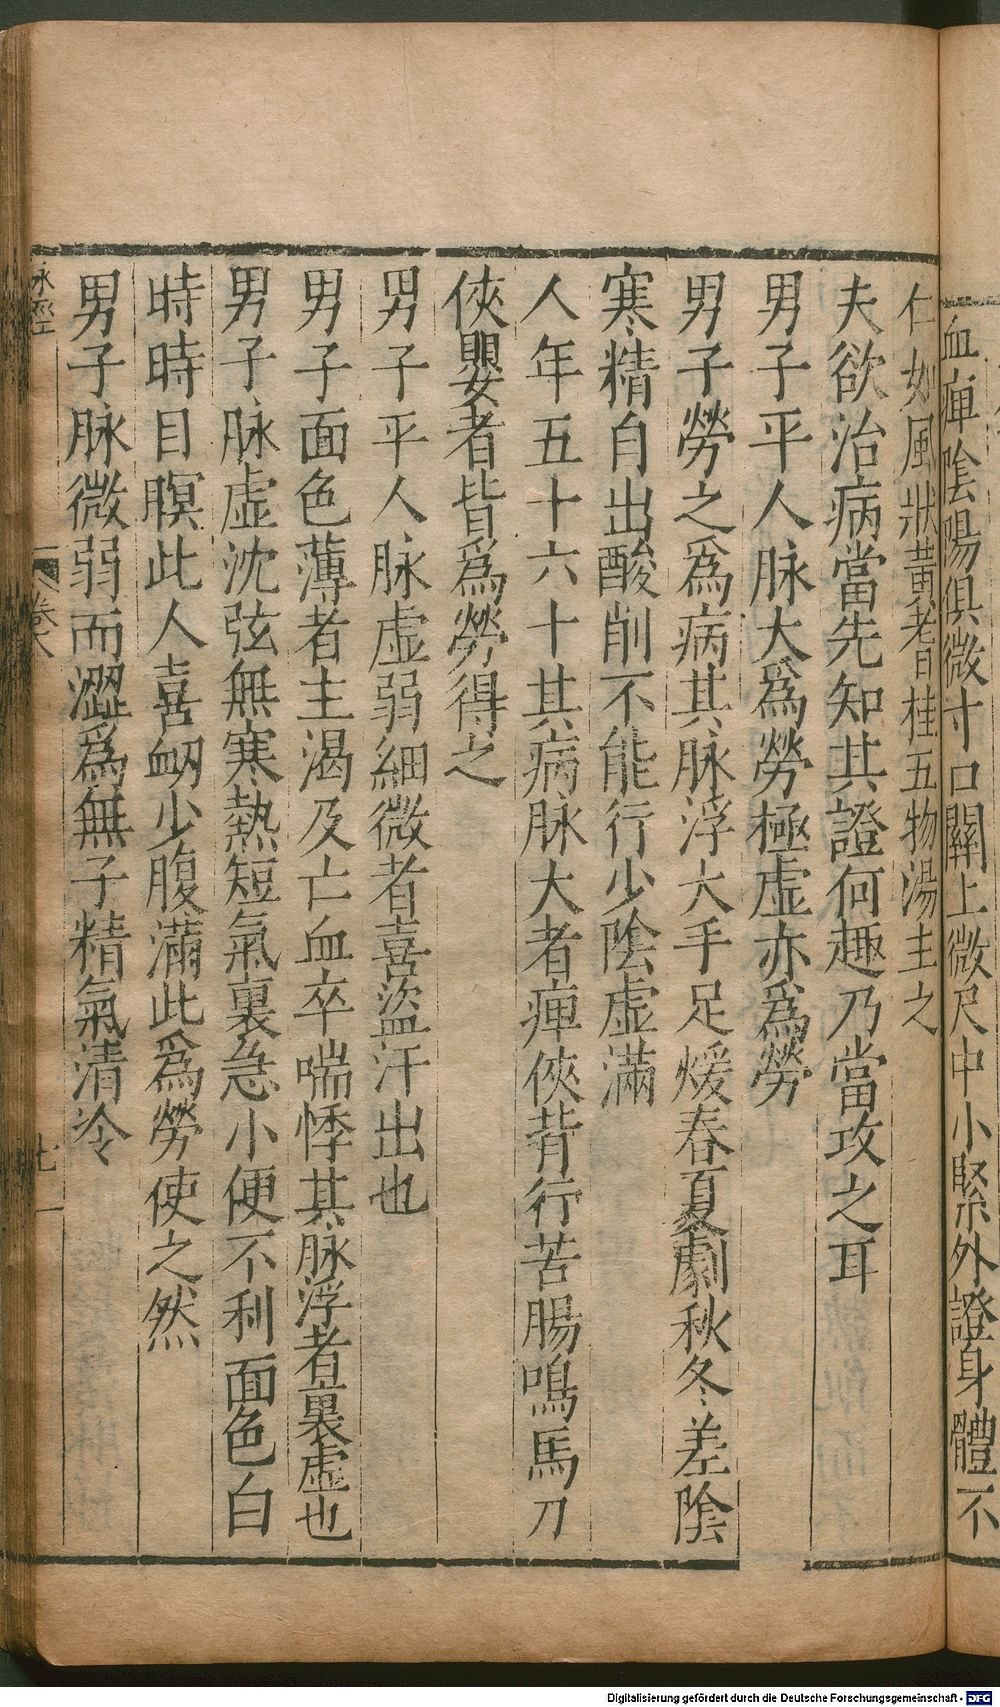 血痺陰陽俱微寸口關上微尺中小緊外證身體不
仁如風狀黃耆桂五物湯主之
夫欲治病當先知其證何趣乃當攻之耳
男子平人脉大爲勞極虛亦爲勞
男子勞之爲病其脉浮大手足煖春夏劇秋冬差陰
寒精自出酸削不能行少陰虛滿
人年五十六十其病脉大者痺俠背行苦腸鳴馬刀
俠嬰者皆爲勞得之
男子平人脉虛弱細微者喜盜汗出也
男子面色薄者主渴及亡血卒喘悸其脉浮者裏虛也
男子脉虛沈弦無寒熱短氣裏急小便不利面色白
時時目瞑此人喜衂少腹滿此爲勞使之然
男子脉微弱而澀爲無子精氣清冷
脉經 卷六
Digitalisierung gefördert durch die Deutsche Forschungsgemeinschaft - DFG